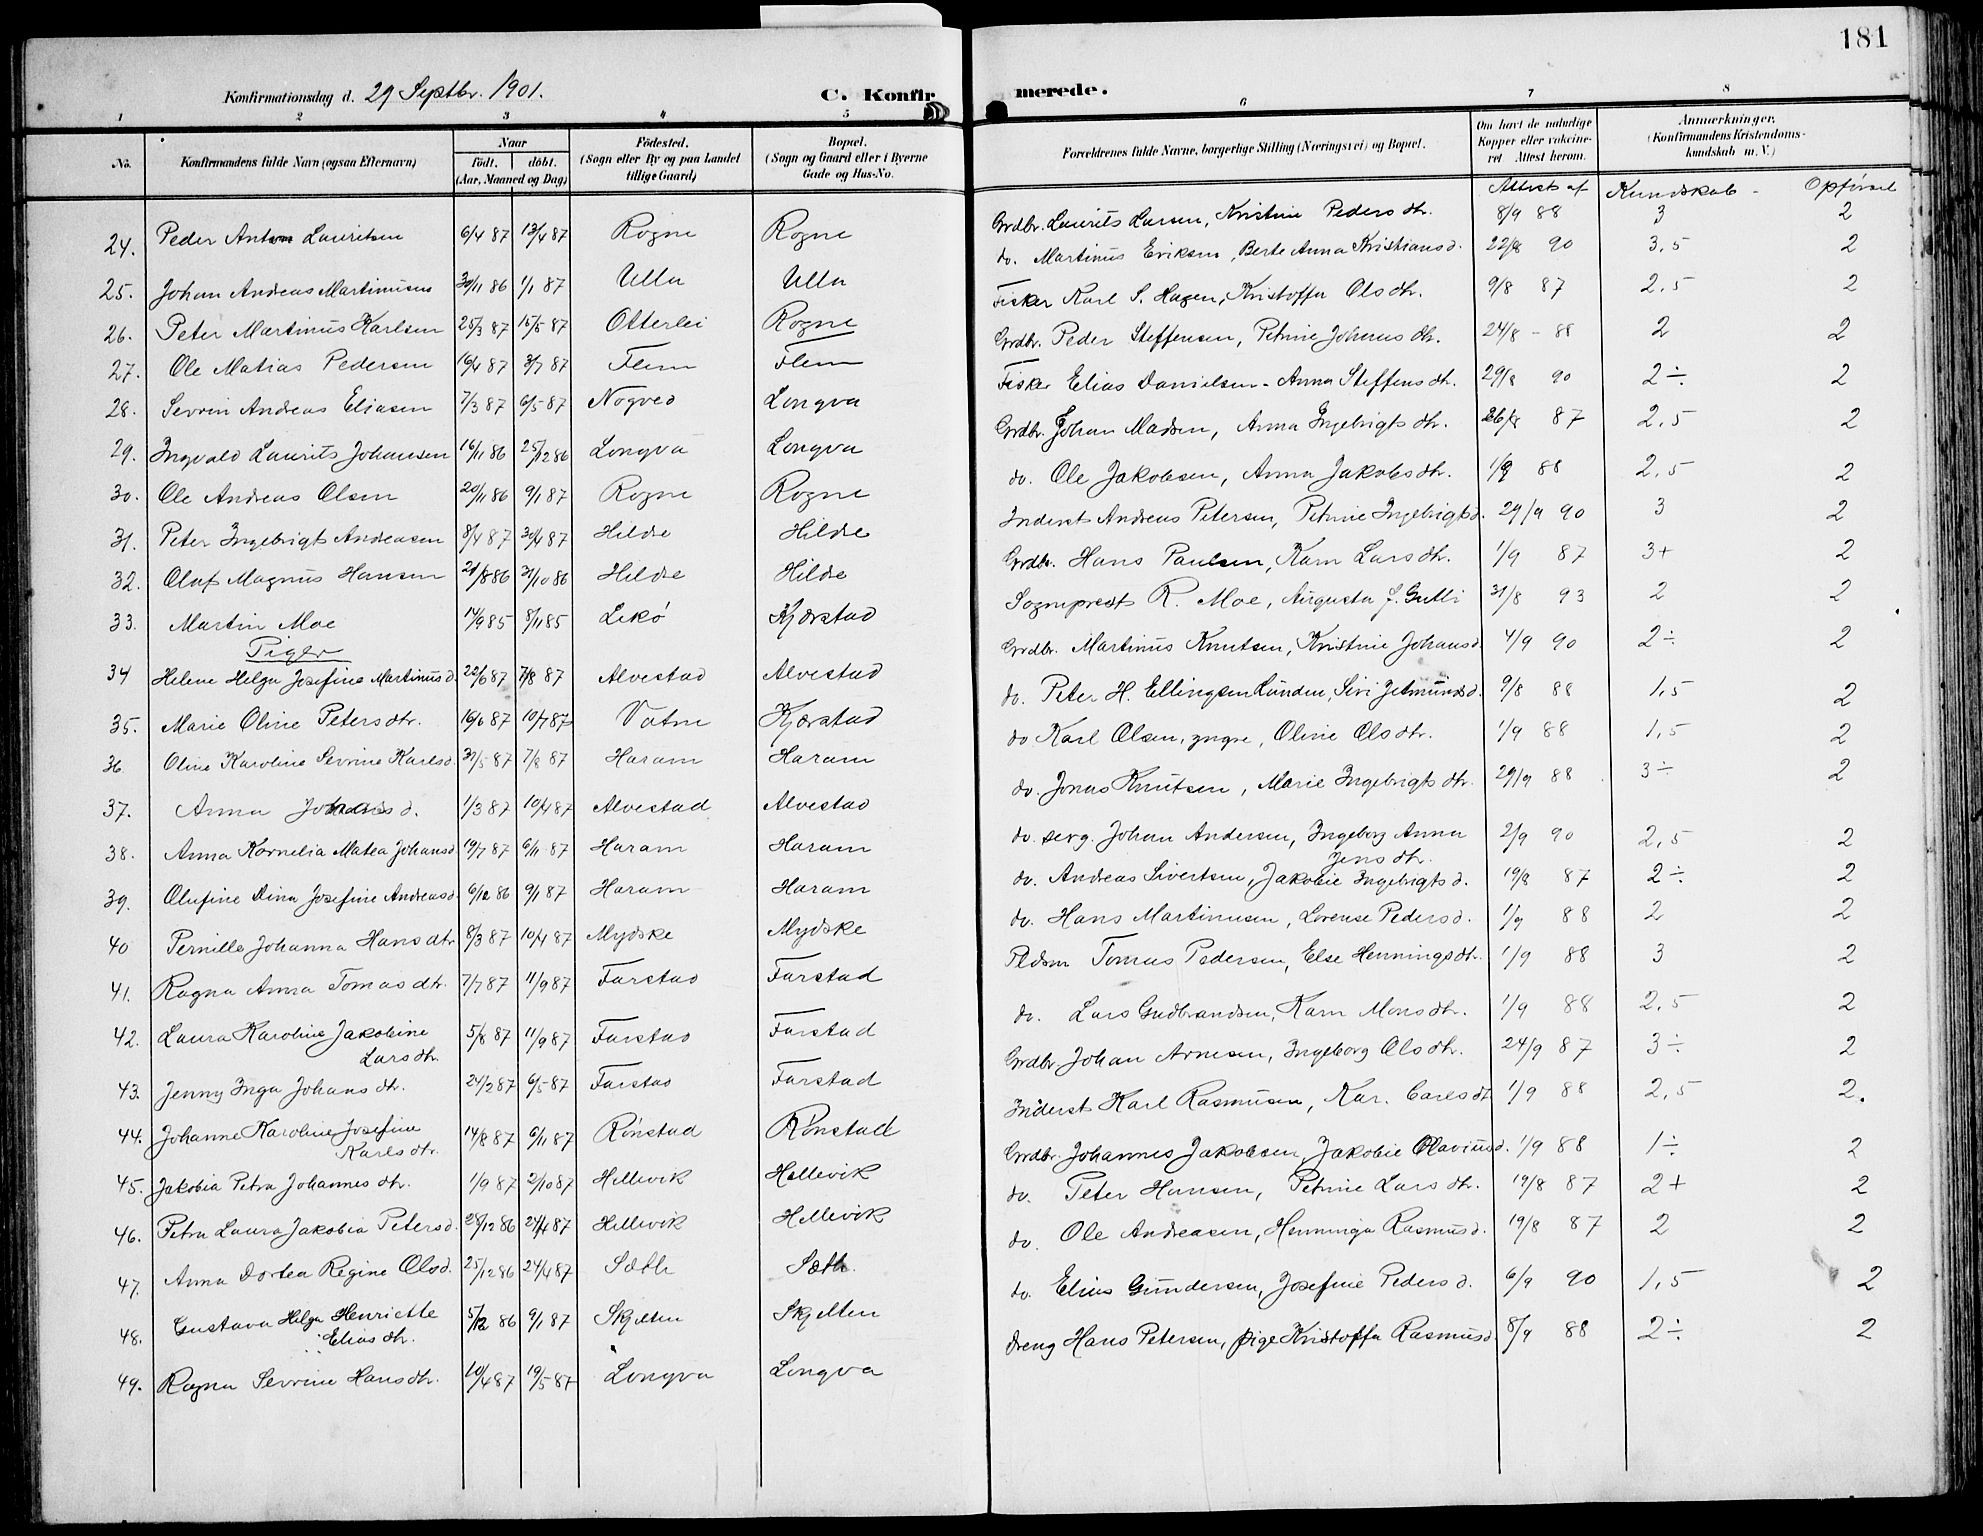 181
Konfirmationsdag d. 29 Septbr. 1901.
C. Konfirmerede.
1 2 3 4 5 6 7 8
No. Konfirmandens fulde Navn (ogsaa Efternavn) Naar født. døbt. (Aar, Maaned og Dag) Fødested. (Sogn eller By og paa Landet tillige Gaard) Bopæl. (Sogn og Gaard eller i Byerne Gade og Hus-No.
Forældrenes fulde Navne, borgerlige Stilling (Næringsvei) og Bopæl. Om havt de naturlige Kopper eller vaccineret Attest herom. Anmærkninger. (Konfirmandens Kristendomskundskab m. V.)
Attest af Kundskab - Opførsel
24. Peder Anton Lauritsen 6/4 87 13/4 87 Rogne Rogne
25. Johan Andreas Martinusen 30/11 86 1/1 87 Ulla Ulla
26. Peter Martinus Karlsen 25/3 87 15/5 87 Otterlei Rogne
27. Ole Matias Pedersen 16/4 87 3/7 87 Flem Flem
28. Sevrin Andreas Eliasen 7/3 87 6/5 87 Nogved Longva
29. Ingvald Laurits Johansen 16/11 86 25/12 86 Longva Longva
30. Ole Andreas Olsen 20/11 86 9/1 87 Rogne Rogne
31. Peter Ingebrigt Andreasen 8/4 87 30/4 87 Hildre Hildre
32. Olaf Magnus Hansen 21/8 86 31/10 86 Hildre Hildre
33. Martin Moe 14/9 85 8/11 85 Lekø Kjærstad
Piger
34 Helene Helga Josefine Martinusd. 22/6 87 7/8 87 Alvestad Alvestad
35. Marie Oline Petersdtr. 16/6 87 10/7 87 Vatne Kjærstad
36. Oline Karoline Sevrine Karlsd. 31/5 87 7/8 87 Haram Haram
37. Anna Johansd. 1/3 87 10/4 87 Alvestad Alvestad
38. Anna Kornelia Matea Johansd. 19/7 87 6/11 87 Haram Haram
39. Olufine Dina Josefine Andreasd. 6/12 86 9/1 87 Haram Haram
40 Pernille Johanna Hansdtr. 8/3 87 10/4 87 Mydske Mydske
41. Ragna Anna Tomasdtr. 7/7 87 11/9 87 Farstad Farstad
42. Laura Karoline Jakobine Larsdtr. 5/8 87 11/9 87 Farstad Farstad
43. Jenny Inga Johansdtr. 24/2 87 6/5 87 Farstad Farstad
44. Johanne Karoline Josefine Karlsdtr. 14/8 87 6/11 87 Rønstad Rønstad
45. Jakobia Petra Johannesdtr. 1/9 87 2/10 87 Hellevik Hellevik
46. Petra Laura Jakobia Petersd. 28/12 86 24/4 87 Hellevik Hellevik
47. Anna Dortea Regine Olsd. 25/12 86 24/4 87 Sæth Sæth.
48. Gustava Helga Henriette Eliasdtr. 5/12 86 9/1 87 Skjelten Skjelten
49. Ragna Sevrine Hansdtr. 10/4 87 19/5 87 Longva Longva
Grdbr. Laurits Larsen, Kristine Pedersdtr. 8/9 88 3 2
do. Martinus Eriksen, Berte Anna Kristiansd. 22/8 90 3,5 2
Fisker Karl S. Hagen, Kristoffa Olsdtr. 9/8 87 2,5 2
Grdbr. Peder Steffensen, Petrine Johansdtr. 24/8 - 88 2 2
Fisker Elias Danielsen - Anna Steffensdtr. 29/8 90 2÷ 2
Grdbr. Johan Madsen, Anna Ingebrigtsdtr. 26/8 87 2,5 2
do. Ole Jakobsen, Anna Jakobsdtr. 1/9 88 2,5 2
Inderst Andreas Petersen, Petrine Ingebrigtsd. 29/9 90 3 2
Grdbr. Hans Paulsen, Karn Larsdtr. 1/9 87 3+ 2
Sogneprest R. Moe, Augusta f. Gulli 31/8 93 2 2
Grdbr. Martinus Knutsen, Kristine Johansd. 4/9 90 2÷ 2
do. Peter H. Ellingsen Lunden, Siri Jetmundsd. 9/8 88 1,5 2
do Karl Olsen, yngre, Oline Olsdtr. 1/9 88 1,5 2
do. Jonas Knutsen, Marie Ingebrigtsdtr. 29/9 88 3÷ 2
do. serg. Johan Andersen, Ingeborg Anna Jensdtr. 2/9 90 2,5 2
do. Andreas Sivertsen, Jakobie Ingebrigtsd. 19/8 87 2÷ 2
do. Hans Martinusen, Lorense Pedersd. 1/9 88 2 2
Pldsm Tomas Pedersen, Else Henningsdtr. 1/9 88 3 2
do. Lars Gudbrandsen, Karn Monsdtr. 1/9 88 2,5 2
Grdbr Johan Arnesen, Ingeborg Olsdtr. 24/9 87 3÷ 2
Inderst Karl Rasmusen, Kar. Carlsdt 1/9 88 2,5 2.
Grdbr. Johannes Jakobsen, Jakobie Olaviusd. 1/9 88 1÷ 2
do. Peter Hansen, Petrine Larsdtr. 19/8 87 2+ 2
do. Ole Andreasen, Henninga Rasmusd. 19/8 87 2 2
do. Elias Gundersen, Josefine Pedersd. 6/9 90 1,5 2
Dreng Hans Petersen, pige Kristoffa Rasmusd. 8/9 88 2÷ 2